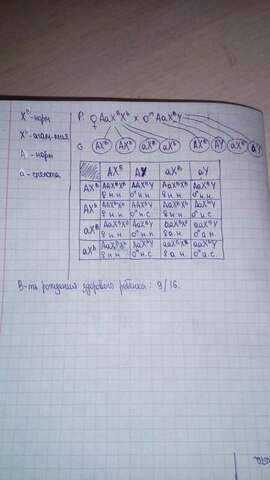 X^B - норм
P: ♀ AaX^BX^b × ♂ AaX^BY
G: AX^B AX^b aX^B aX^b AX^B AY aX^B aY
A - норм
a -
AX^B AY aX^B aY
AX^B AAX^BX^B AAX^BY AaX^BX^B AaX^BY
♀ н.н. ♂ н.н. ♀ н.н. ♂ н.н.
AX^b AAX^BX^b AAX^bY AaX^BX^b AaX^bY
♀ н.н. ♂ н.с. ♀ н.н. ♂ н.с.
aX^B AaX^BX^B AaX^BY aaX^BX^B aaX^BY
♀ н.н. ♂ н.н. ♀ а.н. ♂ а.н.
aX^b AaX^BX^b AaX^bY aaX^BX^b aaX^bY
♀ н.н. ♂ н.с. ♀ а.н. ♂ а.с.
В-ть рождения здорового ребёнка: 9/16.